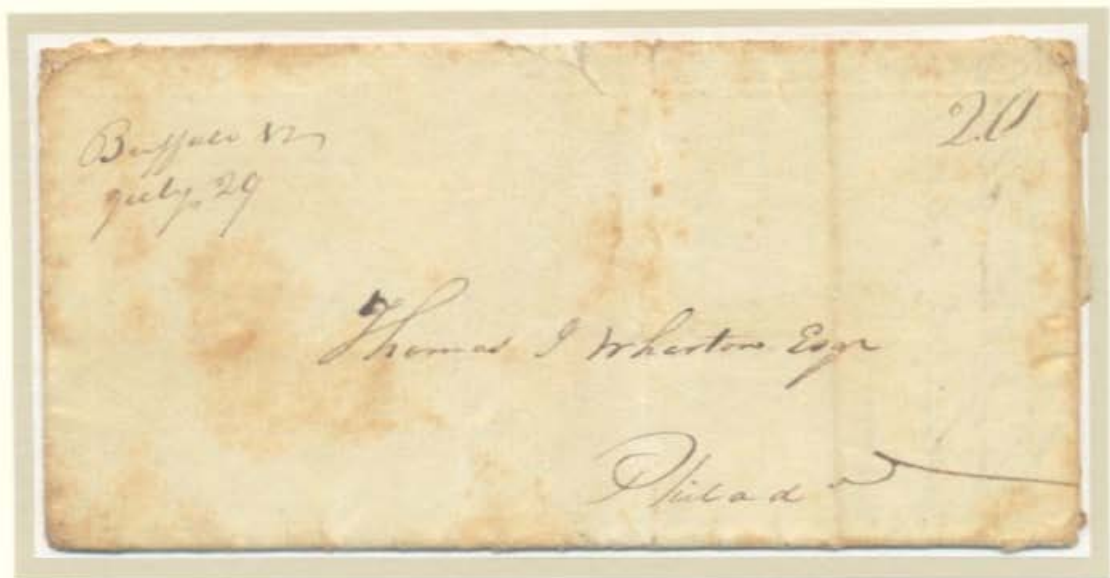 Buffalo
July 29
Thomas I Wharton Esqr
Philada